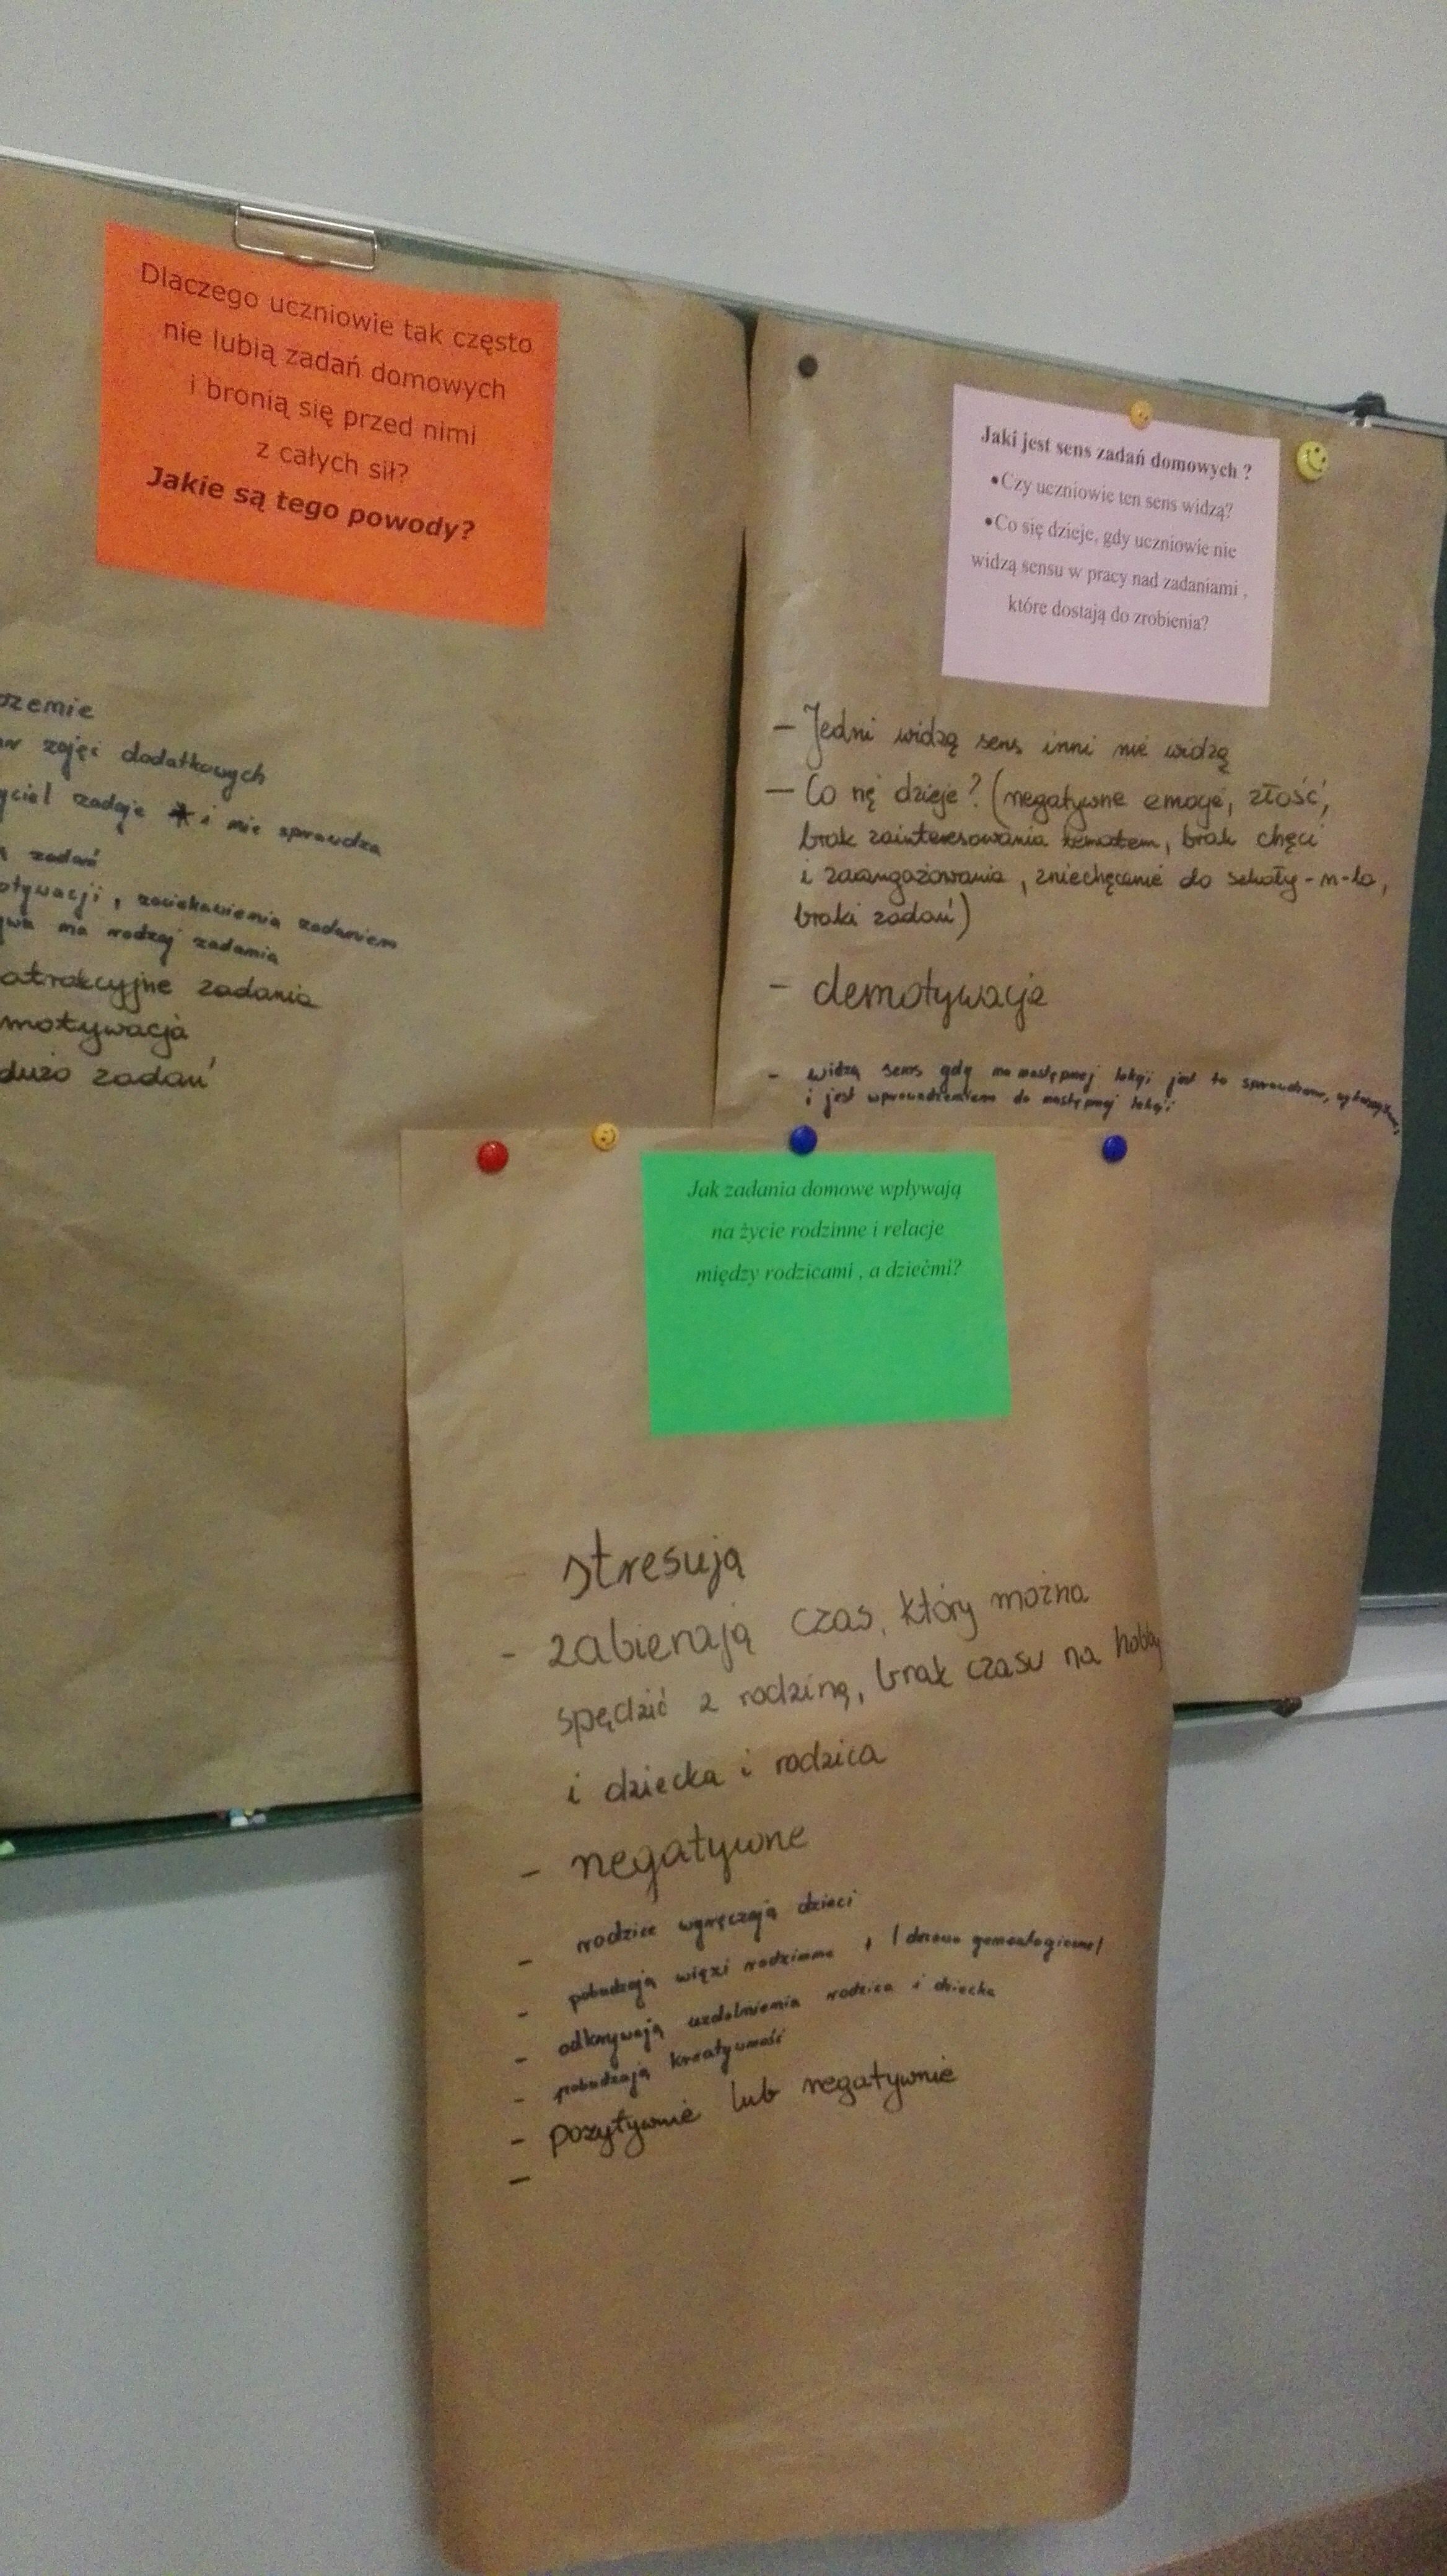 Dlaczego uczniowie tak często
nie lubią zadań domowych
i bronią się przed nimi
z całych sił?
Jakie są tego powody?
zajęć dodatkowych
zadaje i nie sprawdza
zadań
, zaciekawienia zadaniem
na rodzaj zadania
atrakcyjne zadania
motywacja
dużo zadań
Jaki jest sens zadań domowych ?
•Czy uczniowie ten sens widzą?
•Co się dzieje, gdy uczniowie nie
widzą sensu w pracy nad zadaniami ,
które dostają do zrobienia?
- Jedni widzą sens inni nie widzą
- Co się dzieje? (negatywne emocje, złość,
brak zainteresowania tematem, brak chęci
i zaangażowania, zniechęcenie do szkoły - n-la,
braki zadań)
- demotywacja
- widzą sens gdy na następnej lekcji jest to sprawdzane,
i jest wprowadzeniem do następnej lekcji
Jak zadania domowe wpływają
na życie rodzinne i relacje
między rodzicami , a dziećmi?
- stresują
- zabierają czas, który można
spędzić z rodziną, brak czasu na hobby
i dziecka i rodzica
- negatywne
- rodzice wyręczają dzieci
- pobudzają więzi rodzinne + /drzewo genealogiczne/
- odkrywają uzdolnienia rodzica i dziecka
- pobudzają kreatywność
- pozytywnie lub negatywnie
-